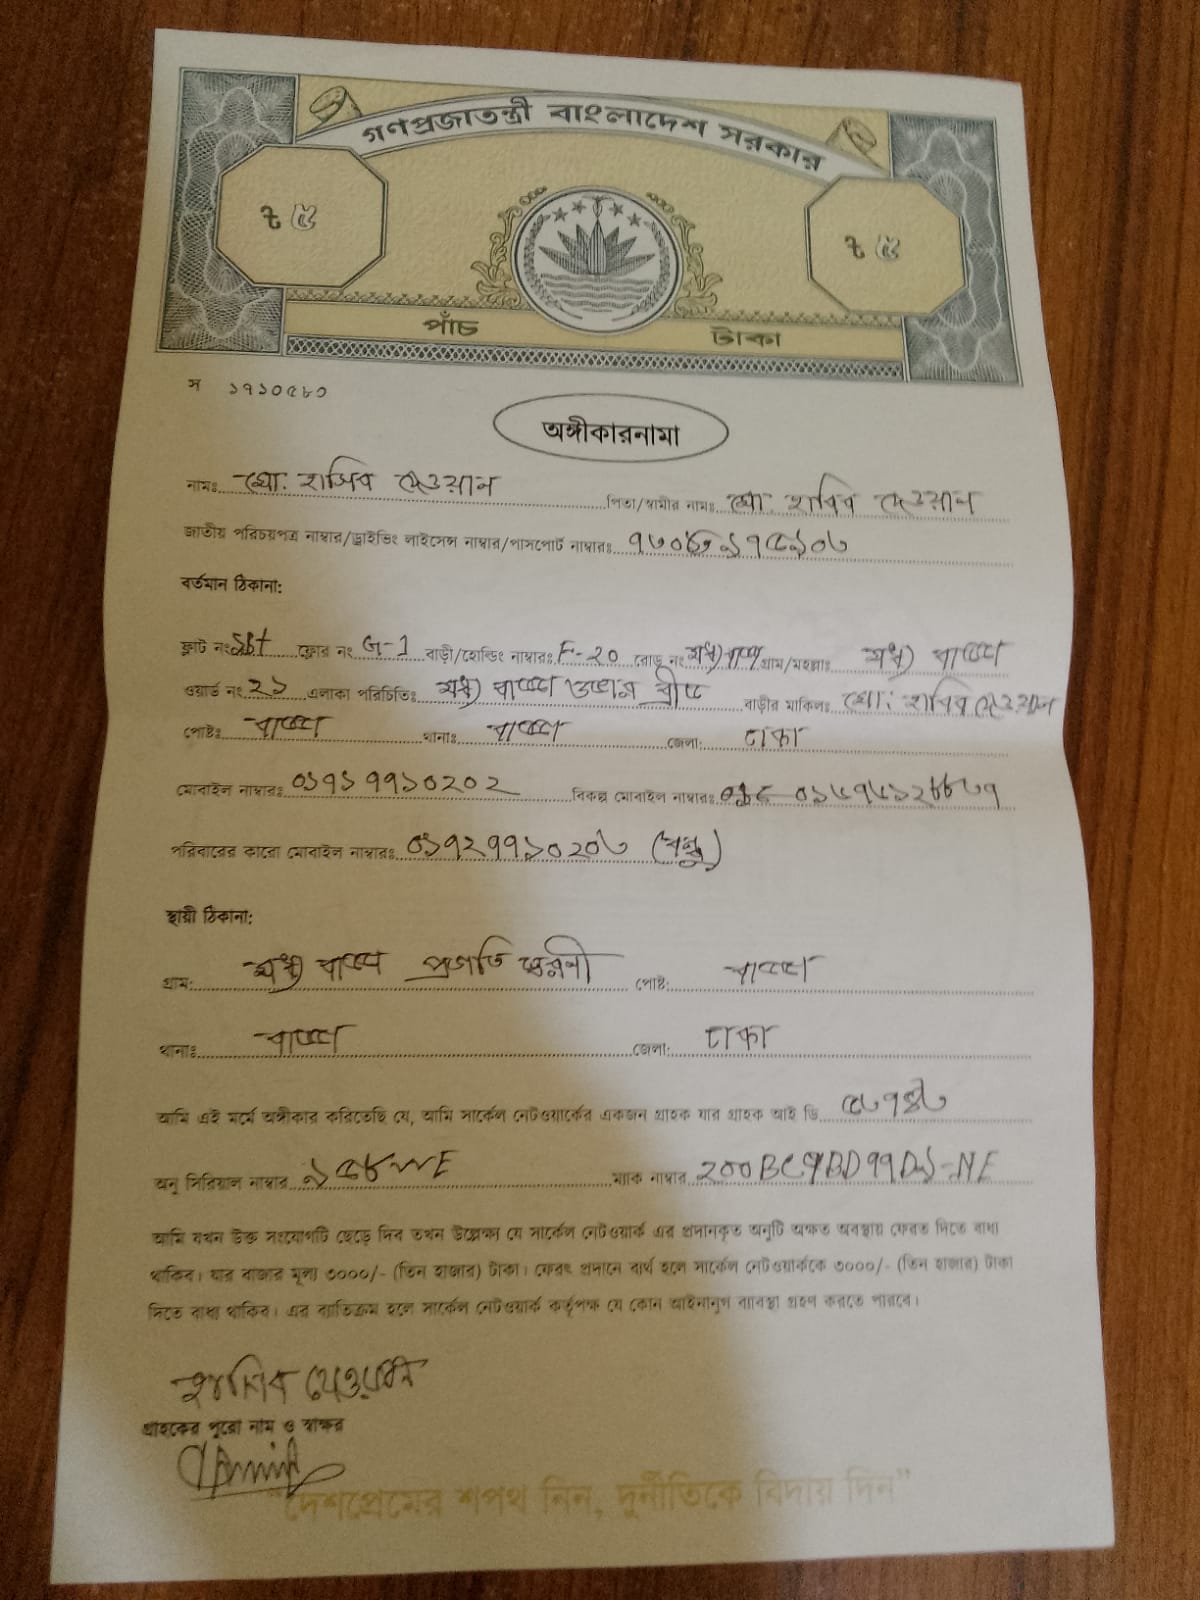 গণপ্রজাতন্ত্রী বাংলাদেশ সরকার
৳ ৫ ৳ ৫
পাঁচ টাকা
স ১৭১০৫৮৩
অঙ্গীকারনামা
নামঃ মো: হাসিব দেওয়ান পিতা/স্বামীর নামঃ মো: হাবিব দেওয়ান
জাতীয় পরিচয়পত্র নাম্বার/ড্রাইভিং লাইসেন্স নাম্বার/পাসপোর্ট নাম্বারঃ
বর্তমান ঠিকানা:
ফ্লাট নং ফ্লোর নং G-1 বাড়ী/হোল্ডিং নাম্বারঃ F-20 রোড নং মধ্য বাড্ডা গ্রাম/মহল্লাঃ মধ্য বাড্ডা
ওয়ার্ড নং ২১ এলাকা পরিচিতিঃ মধ্য বাড্ডা বাড়ীর মালিকঃ মো: হাবিব দেওয়ান
পোষ্টঃ বাড্ডা থানাঃ বাড্ডা জেলা: ঢাকা
মোবাইল নাম্বারঃ ০১৭১৭৭১০২০২ বিকল্প মোবাইল নাম্বারঃ
পরিবারের কারো মোবাইল নাম্বারঃ ০১৭২৭৭১০২০৩
স্থায়ী ঠিকানা:
গ্রাম: মধ্য বাড্ডা প্রগতি স্বরণী পোষ্ট: বাড্ডা
থানাঃ বাড্ডা জেলা: ঢাকা
আমি এই মর্মে অঙ্গীকার করিতেছি যে, আমি সার্কেল নেটওয়ার্কের একজন গ্রাহক যার গ্রাহক আই ডি
অনু সিরিয়াল নাম্বার ম্যাক নাম্বার
আমি যখন উক্ত সংযোগটি ছেড়ে দিব তখন উল্লেক্ষ্য যে সার্কেল নেটওয়ার্ক এর প্রদানকৃত অনুটি অক্ষত অবস্থায় ফেরত দিতে বাধ্য
থাকিব। যার বাজার মূল্য ৩০০০/- (তিন হাজার) টাকা। ফেরৎ প্রদানে ব্যর্থ হলে সার্কেল নেটওয়ার্ককে ৩০০০/- (তিন হাজার) টাকা
দিতে বাধ্য থাকিব। এর ব্যতিক্রম হলে সার্কেল নেটওয়ার্ক কর্তৃপক্ষ যে কোন আইনানুগ ব্যাবস্থা গ্রহণ করতে পারবে।
হাসিব দেওয়ান
গ্রাহকের পুরো নাম ও স্বাক্ষর
"দেশপ্রেমের শপথ নিন, দুর্নীতিকে বিদায় দিন"